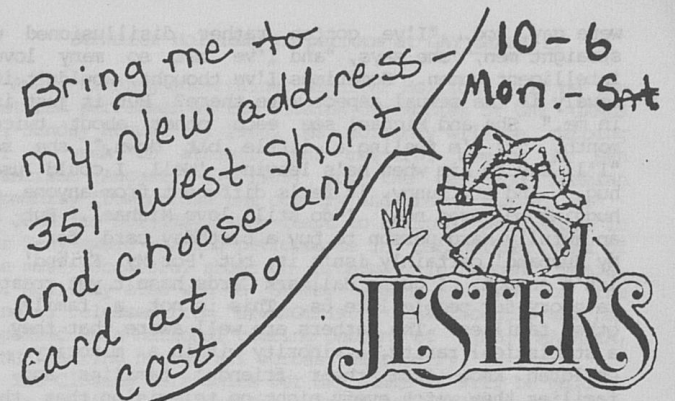 Bring me to
my New address
351 West Short
and choose any
card at no
cost
10-6
Mon. - Sat
JESTERS